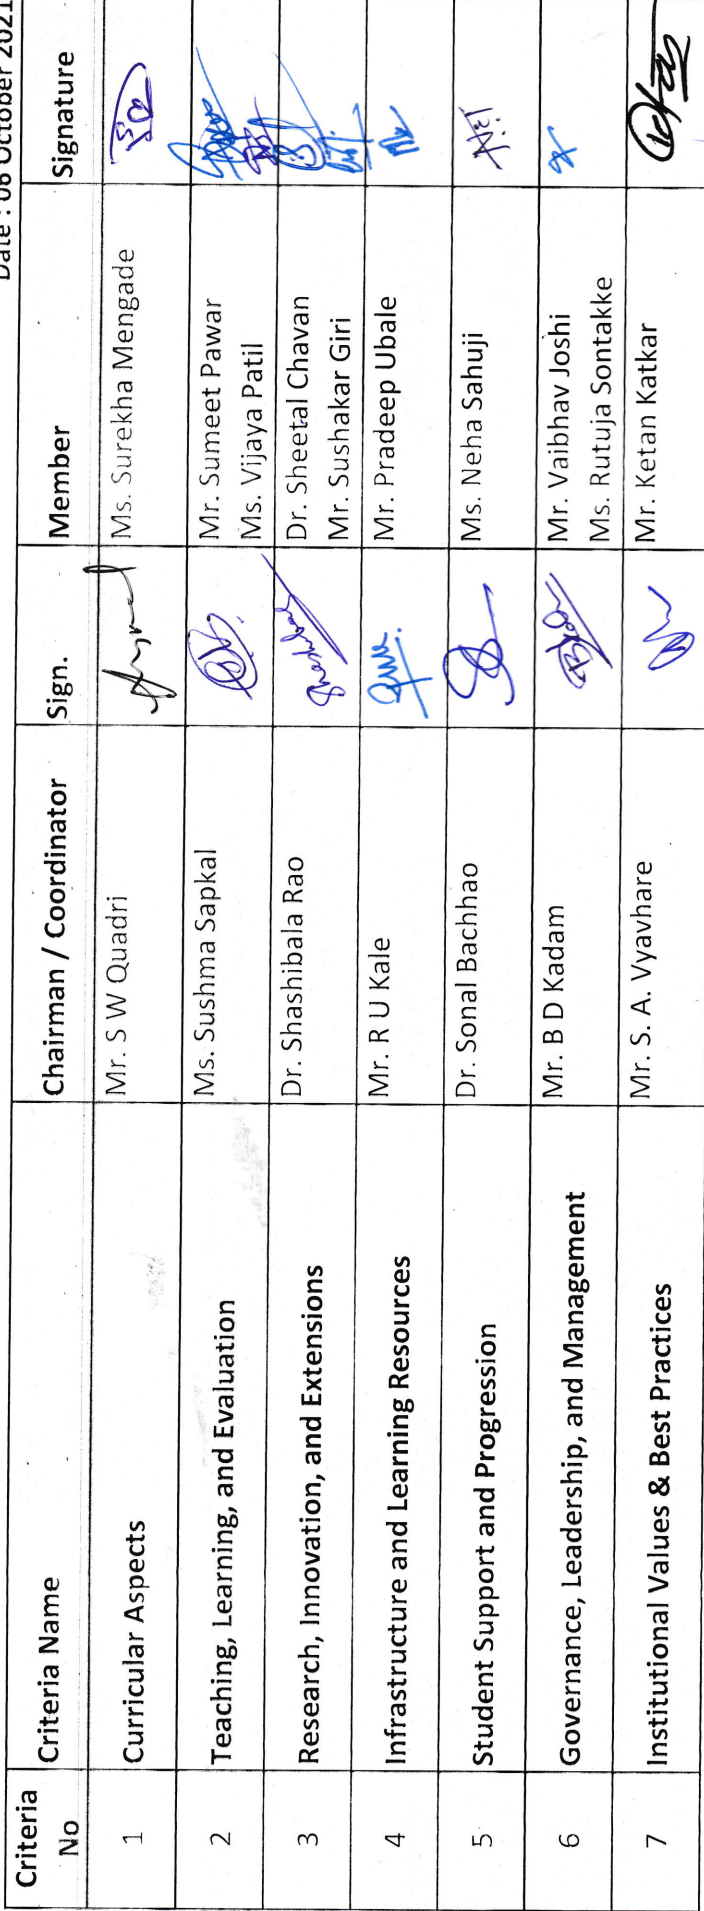 Date : 06 October 2021
Criteria No | Criteria Name | Chairman / Coordinator | Sign. | Member | Signature
1 | Curricular Aspects | Mr. S W Quadri | Ms. Surekha Mengade
2 | Teaching, Learning, and Evaluation | Ms. Sushma Sapkal | Mr. Sumeet Pawar
Ms. Vijaya Patil
3 | Research, Innovation, and Extensions | Dr. Shashibala Rao | Dr. Sheetal Chavan
Mr. Sushakar Giri
4 | Infrastructure and Learning Resources | Mr. R U Kale | Mr. Pradeep Ubale
5 | Student Support and Progression | Dr. Sonal Bachhao | Ms. Neha Sahuji
6 | Governance, Leadership, and Management | Mr. B D Kadam | Mr. Vaibhav Joshi
Ms. Rutuja Sontakke
7 | Institutional Values & Best Practices | Mr. S. A. Vyavhare | Mr. Ketan Katkar